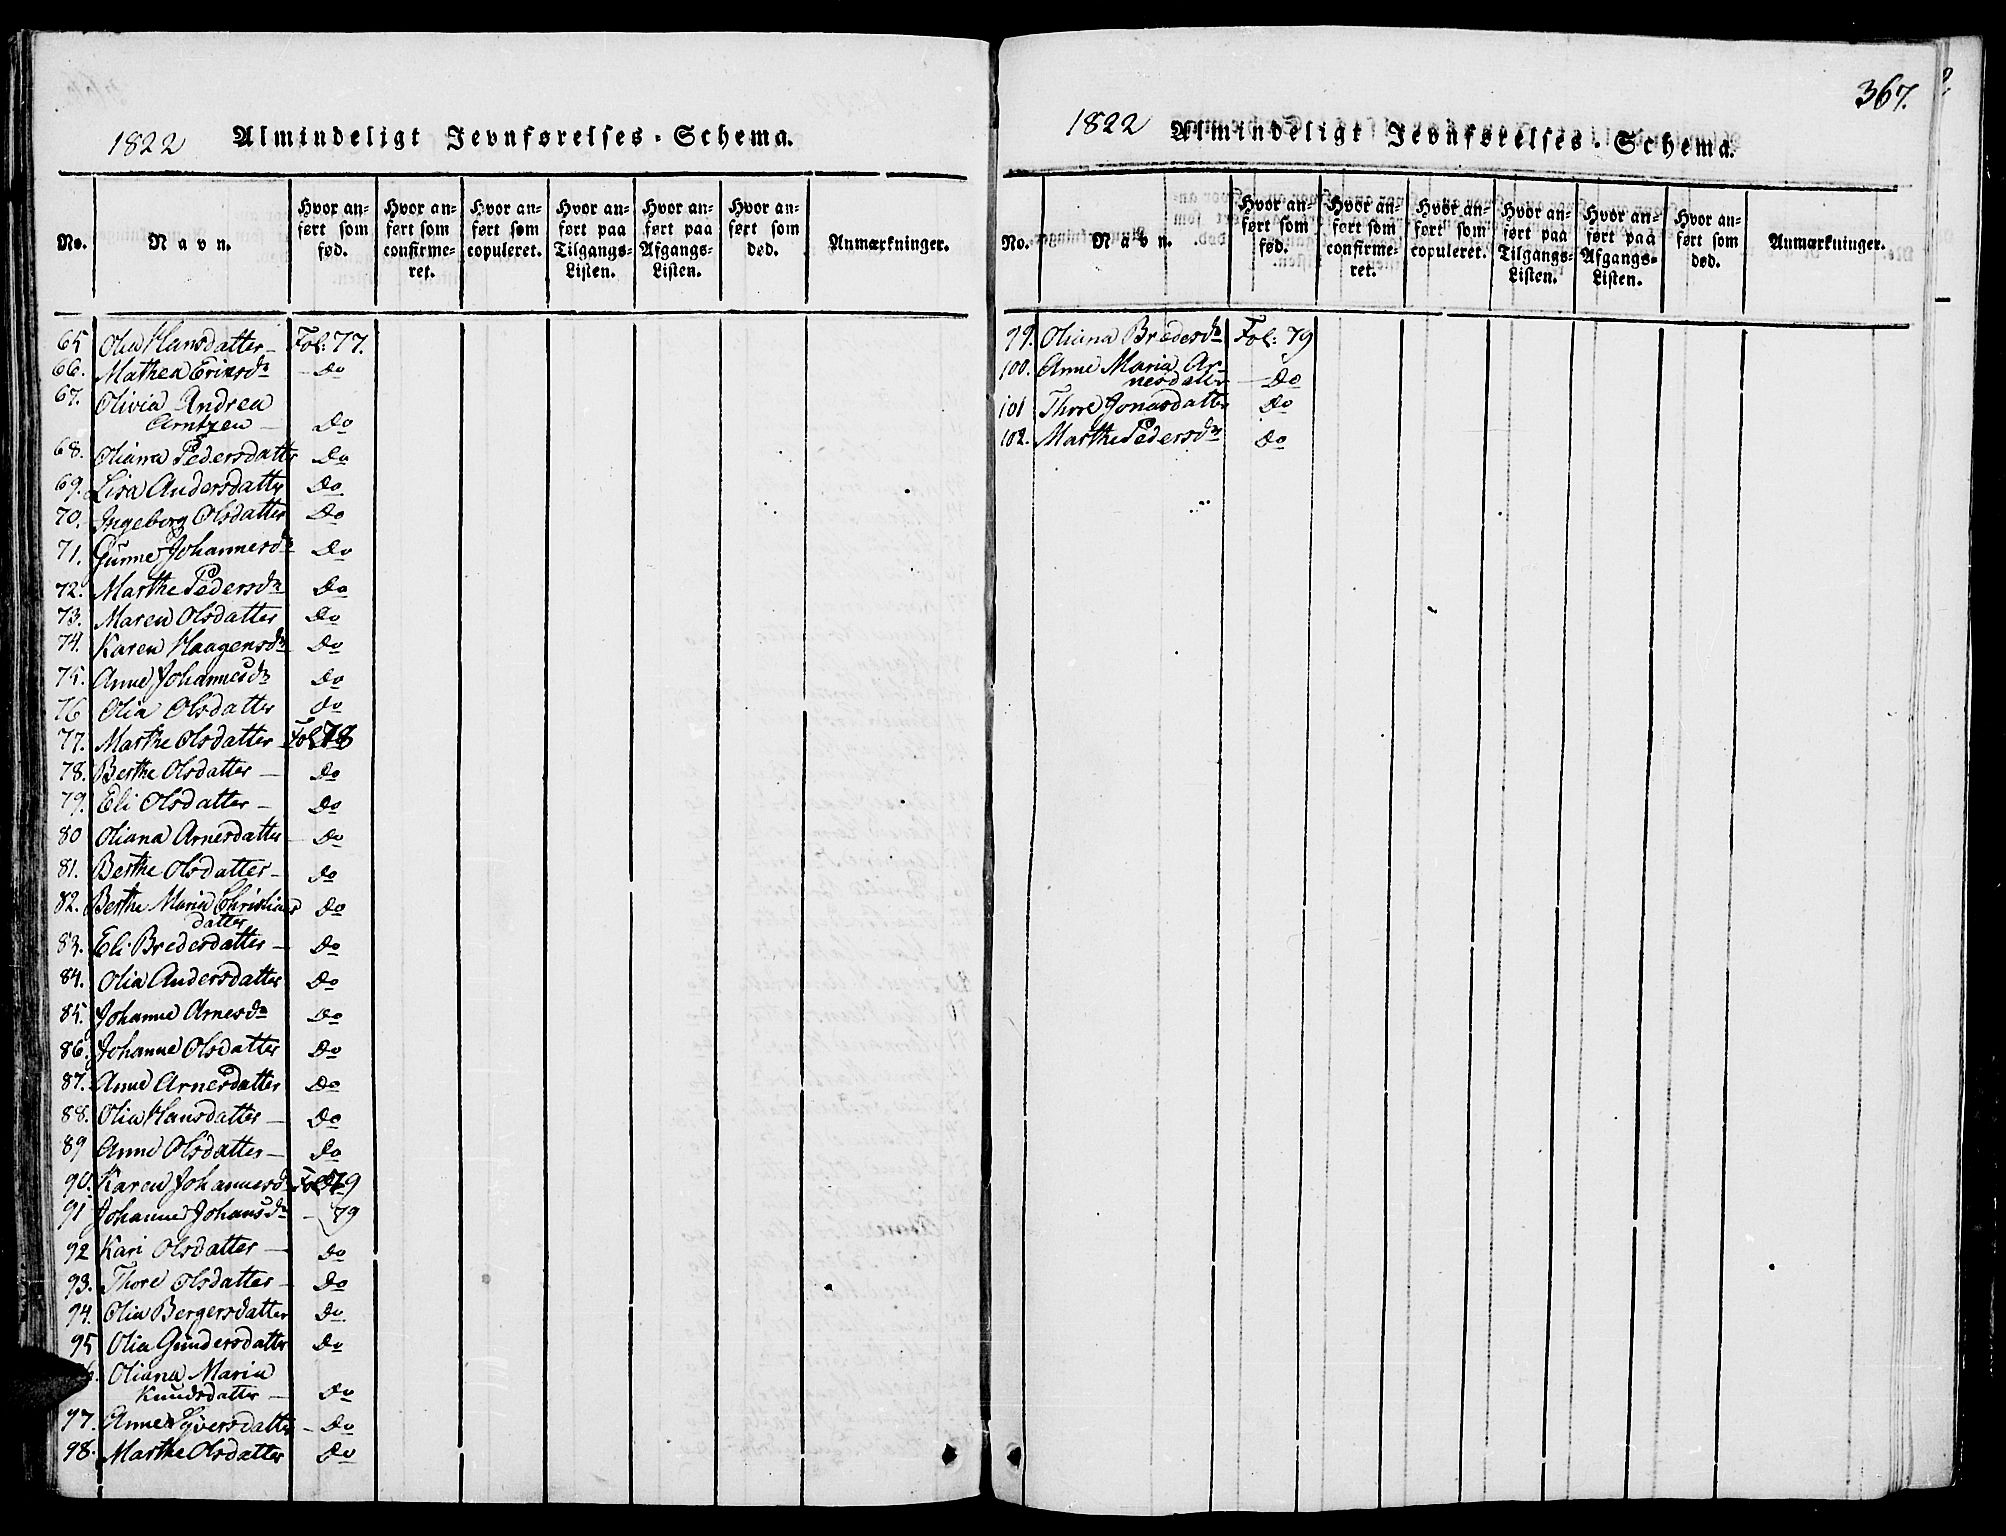 1822 Almindeligt Jevnførelses-Schema.
No. Navn. Hvor anført som fød. Hvor anført som confirmeret. Hvor anført som copuleret. Hvor anført paa Tilgangs-Listen. Hvor anført paa Afgangs-Listen. Hvor anført som død. Anmærkninger.
65 Olia Hansdatter - Fol: 77.
66. Mathea Eriksdr - Do
67. Olivia Andrea
Arntzen - Do
68. Oliana Pedersdatter Do
69. Lisa Andersdatter Do
70. Ingeborg Olsdatter Do
71. Gunne Johannesdr Do
72. Marthe Pedersdr Do
73. Maren Olsdatter Do
74. Karen Haagensdr Do
75. Anne Johannesdr Do
76 Olia Olsdatter Do
77. Marthe Olsdatter - Fol 78
78. Berthe Olsdatter - Do
79. Eli Olsdatter - Do
80 Oliana Arnesdatter - Do
81. Berthe Olsdatter - Do
82. Berthe Maria Christians
datter Do
83. Eli Bredesdatter - Do
84. Olia Andersdatter Do
85. Johanne Arnesdr Do
86. Johanne Olsdatter Do
87. Anne Arnesdatter Do
88. Olia Hansdatter - Do
89 Anne Olsdatter - Do
90. Karen Johannesdr Fol 79
91 Johanne Johansdr - 79
92 Kari Olsdatter - Do
93. Thore Olsdatter - Do
94. Olia Bergersdatter Do
95 Olia Gundersdatter Do
Oliana Maria
Knudsdatter - Do
97. Anne Syversdatter - Do
98. Marthe Olsdatter Do
367.
1822 Almindeligt Jevnførelses-Schema.
No. Navn. Hvor anført som fød. Hvor anført som confirmeret. Hvor anført som copuleret. Hvor anført paa Tilgangs-Listen. Hvor anført paa Afgangs-Listen. Hvor anført som død. Anmærkninger.
99. Oliana Bredesdr Fol: 79
100. Anne Maria Ar-
nesdatter - Do
101 Thore Jonasdatter Do
102. Marthe Pedersdr Do